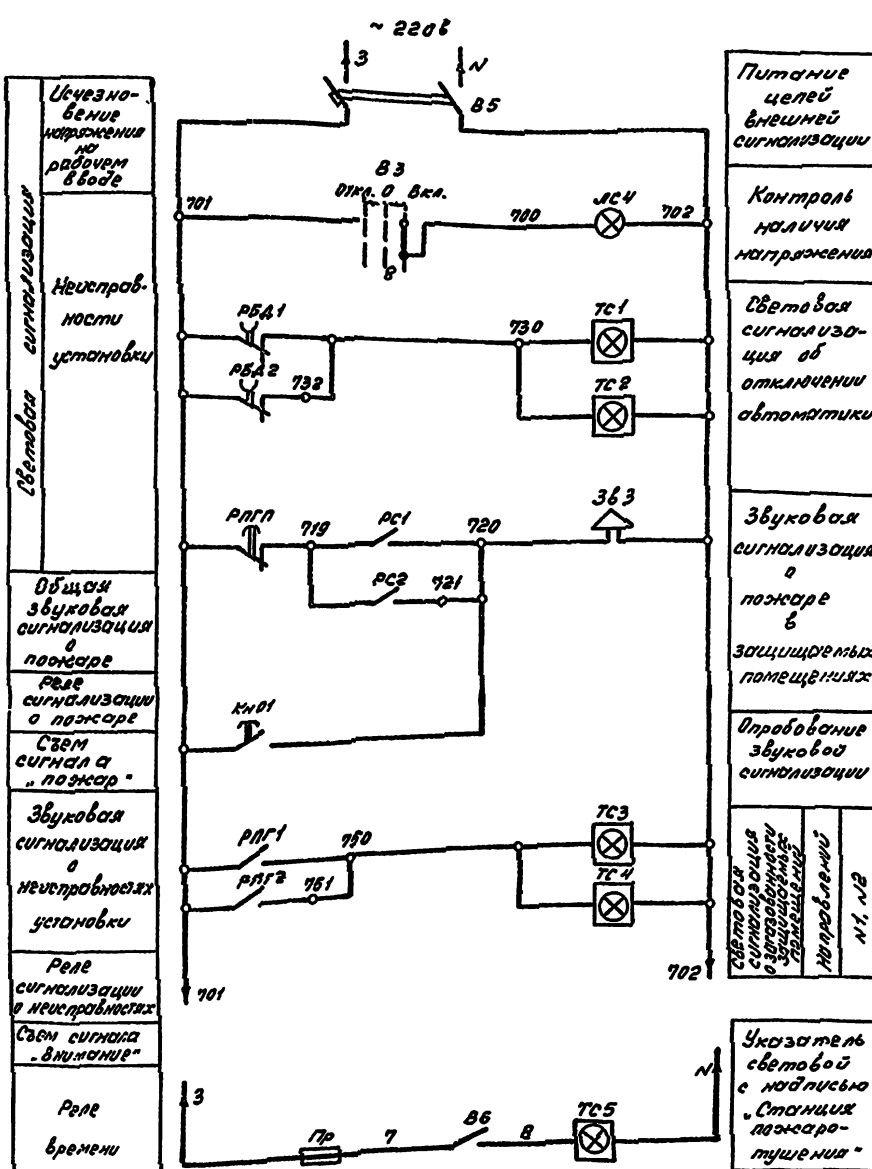 ~ 220в
3
N
В5
Исчезно-
вение
напряжения
на
рабочем
вводе
Световая сигнализация
Неисправ-
ности
установки
Общая
звуковая
сигнализация
о
пожаре
Реле
сигнализации
о пожаре
Съем
сигнала
„пожар"
Звуковая
сигнализация
о
неисправностях
установки
Реле
сигнализации
о неисправностях
Съем сигнала
„Внимание"
Реле
времени
701
В3
Откл. О Вкл.
8
700
ЛС4
702
РБД1
730
ТС1
РБД2
732
ТС2
РПГП
719
РС1
720
Зв3
РС2
721
КН01
РПГ1
750
ТС3
РПГ2
751
ТС4
701
702
3
Пр
7
В6
8
ТС5
N
Питание
цепей
внешней
сигнализации
Контроль
наличия
напряжения
Световая
сигнализа-
ция об
отключении
автоматики
Звуковая
сигнализация
о
пожаре
в
защищаемых
помещениях
Опробование
звуковой
сигнализации
Световая
сигнализация
о загазованности
защищаемых
помещений
Направлений
N1, N2
Указатель
световой
с надписью
„Станция
пожаро-
тушения"